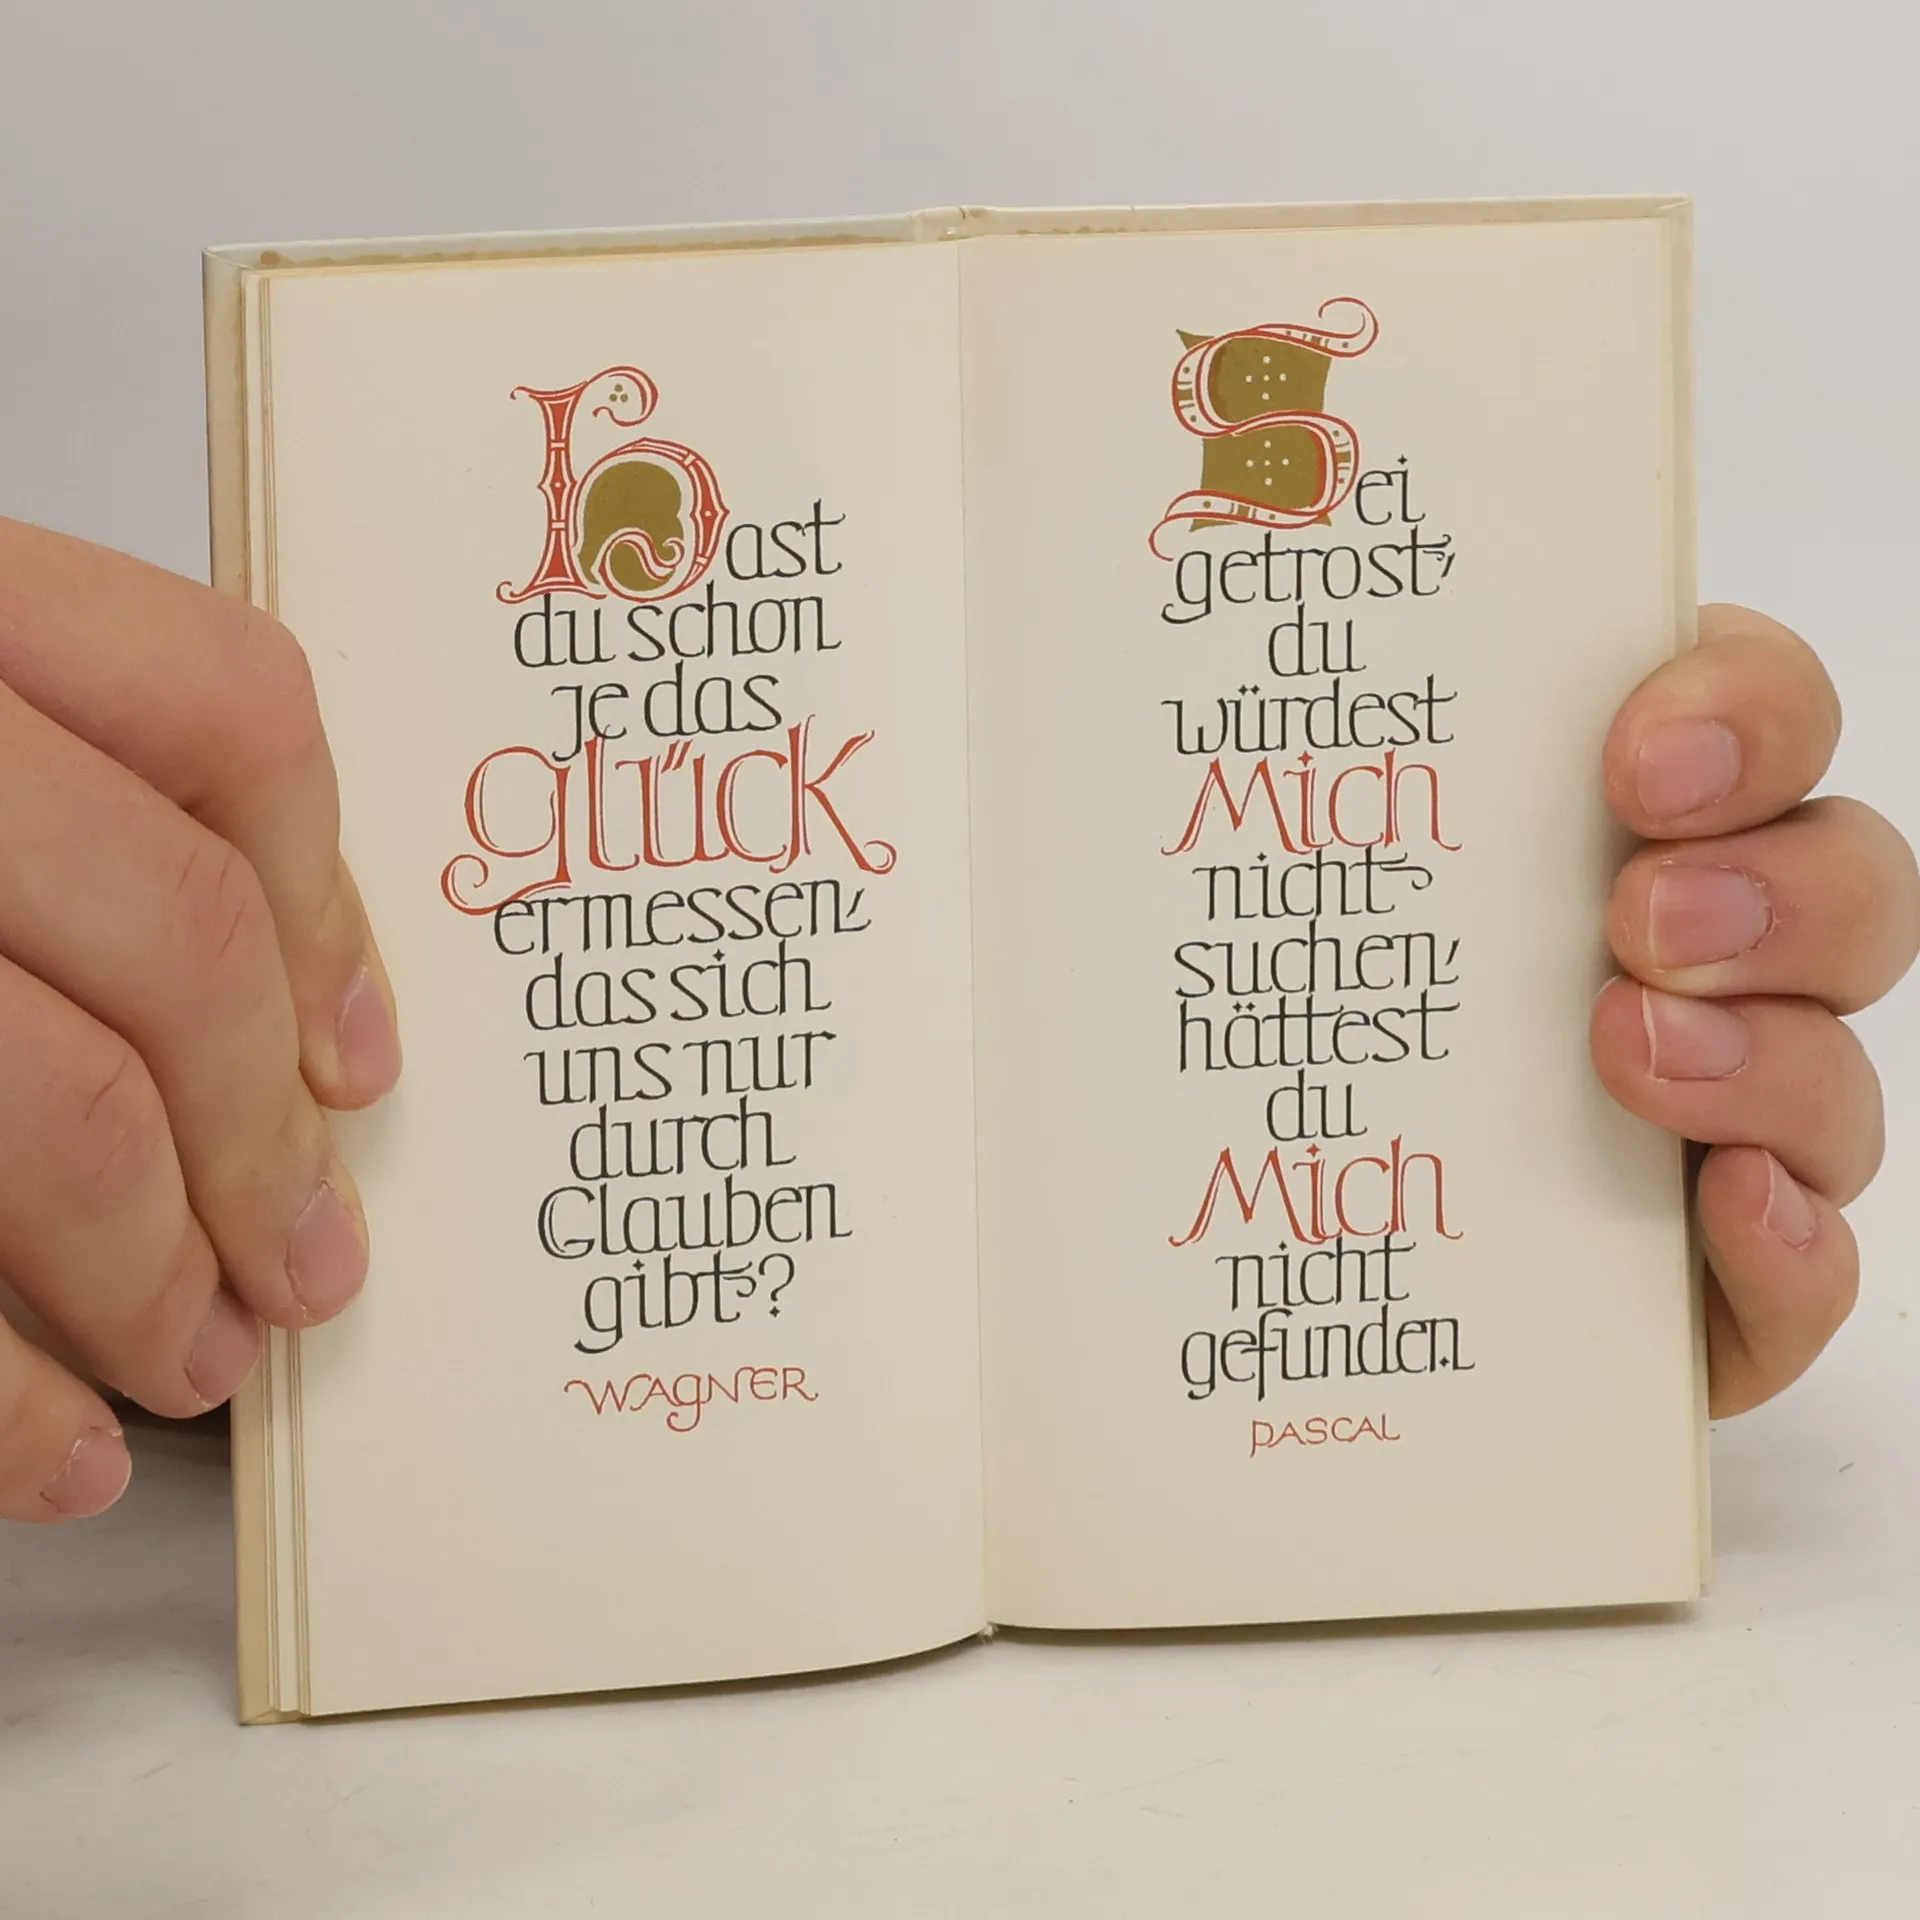 Hast
du schon
je das
glück
ermessen,
das sich
uns nur
durch
Glauben
gibt?
WAGNER
Sei
getrost,
du
würdest
Mich
nicht
suchen,
hättest
du
Mich
nicht
gefunden.
PASCAL